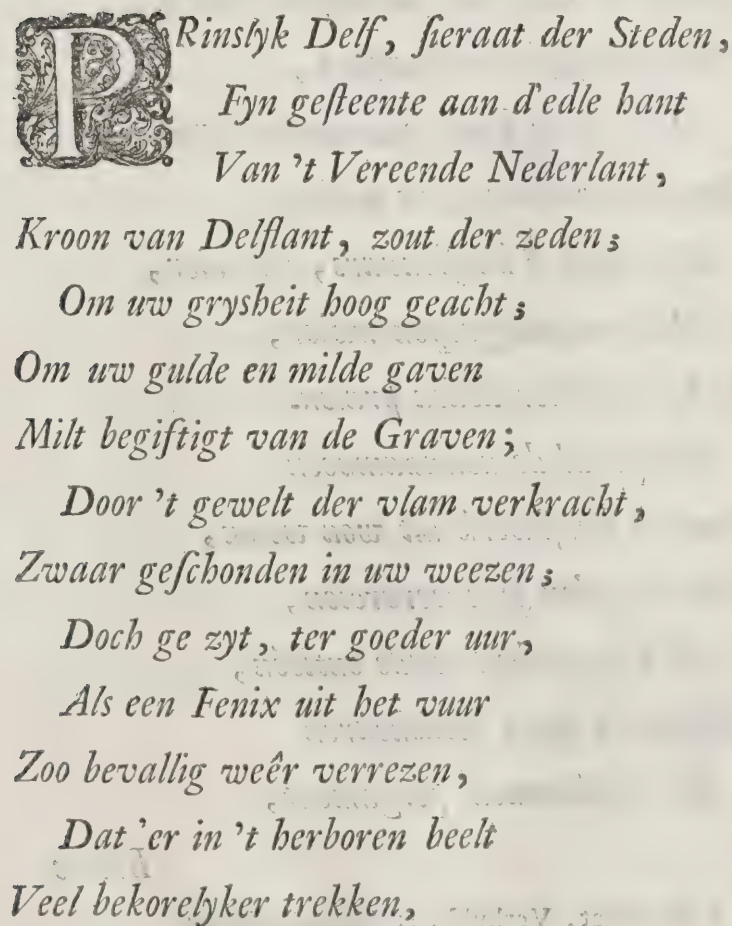 PRinslyk Delf, sieraat der Steden,
Fyn gesteente aan d'edle hant
Van 't Vereende Nederlant,
Kroon van Delflant, zout der zeden;
Om uw grysheit hoog geacht;
Om uw gulde en milde gaven
Milt begiftigt van de Graven;
Door 't gewelt der vlam verkracht,
Zwaar geschonden in uw weezen;
Doch ge zyt, ter goeder uur,
Als een Fenix uit het vuur
Zoo bevallig weêr verrezen,
Dat 'er in 't herboren beelt
Veel bekorelyker trekken,